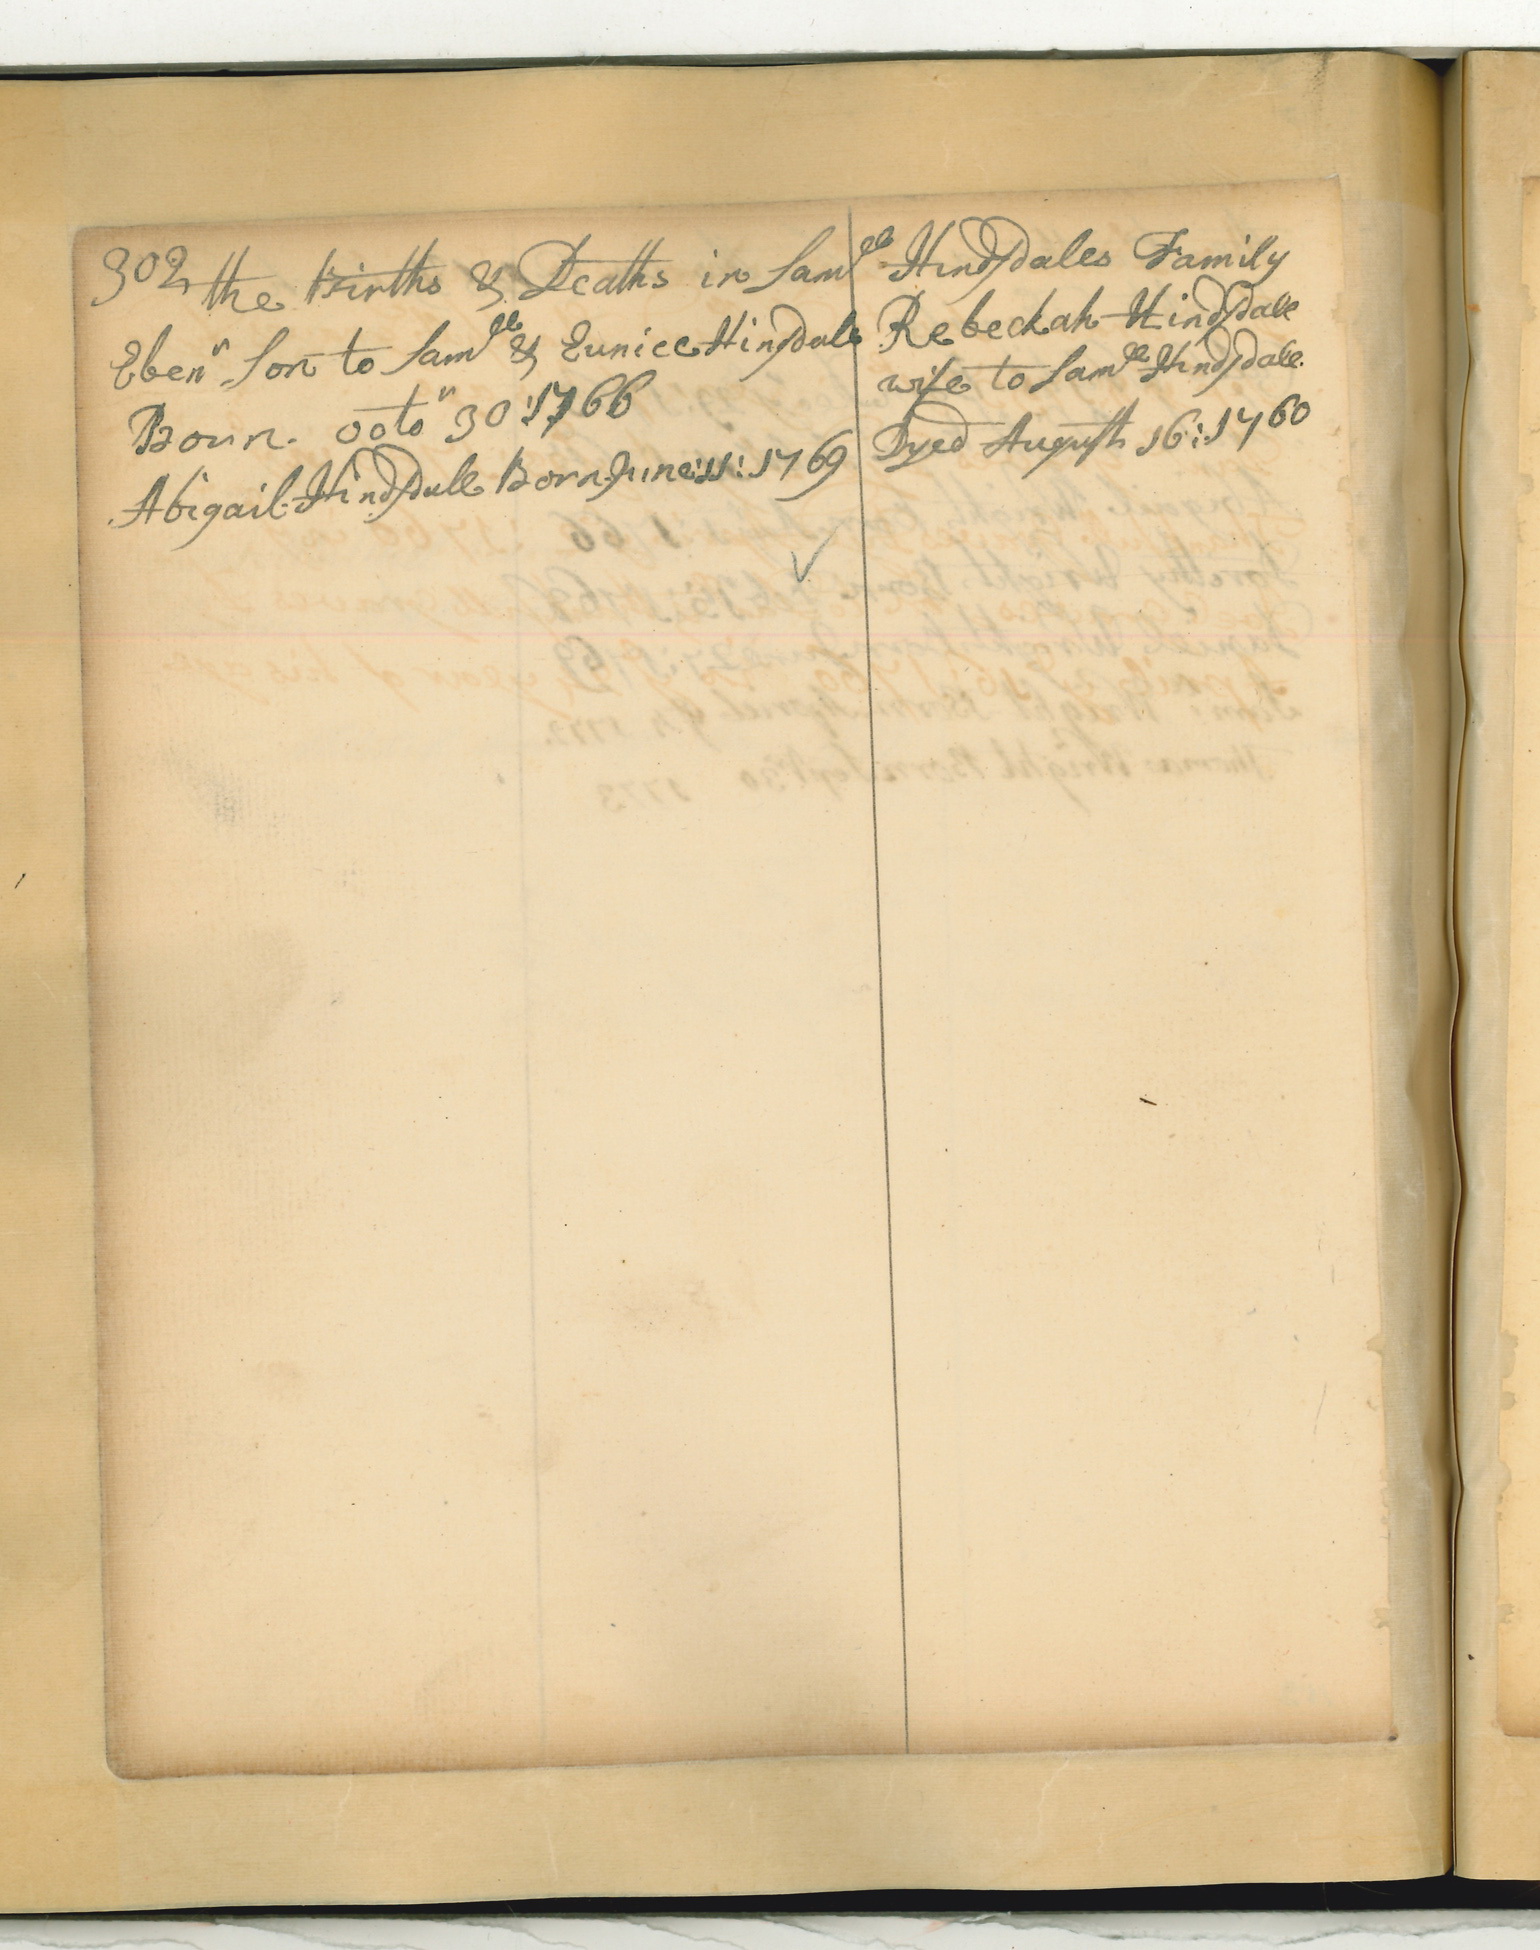 302 the Births & Deaths in Samll Hindsdales Family
Ebenr Son to Samll & Eunice Hinsdale
Born. octor 30:1766
Abigail Hindsdale Born June:11:1769
Rebeckah Hindsdale
wife to Samll Hindsdale
Dyed August 16:1760